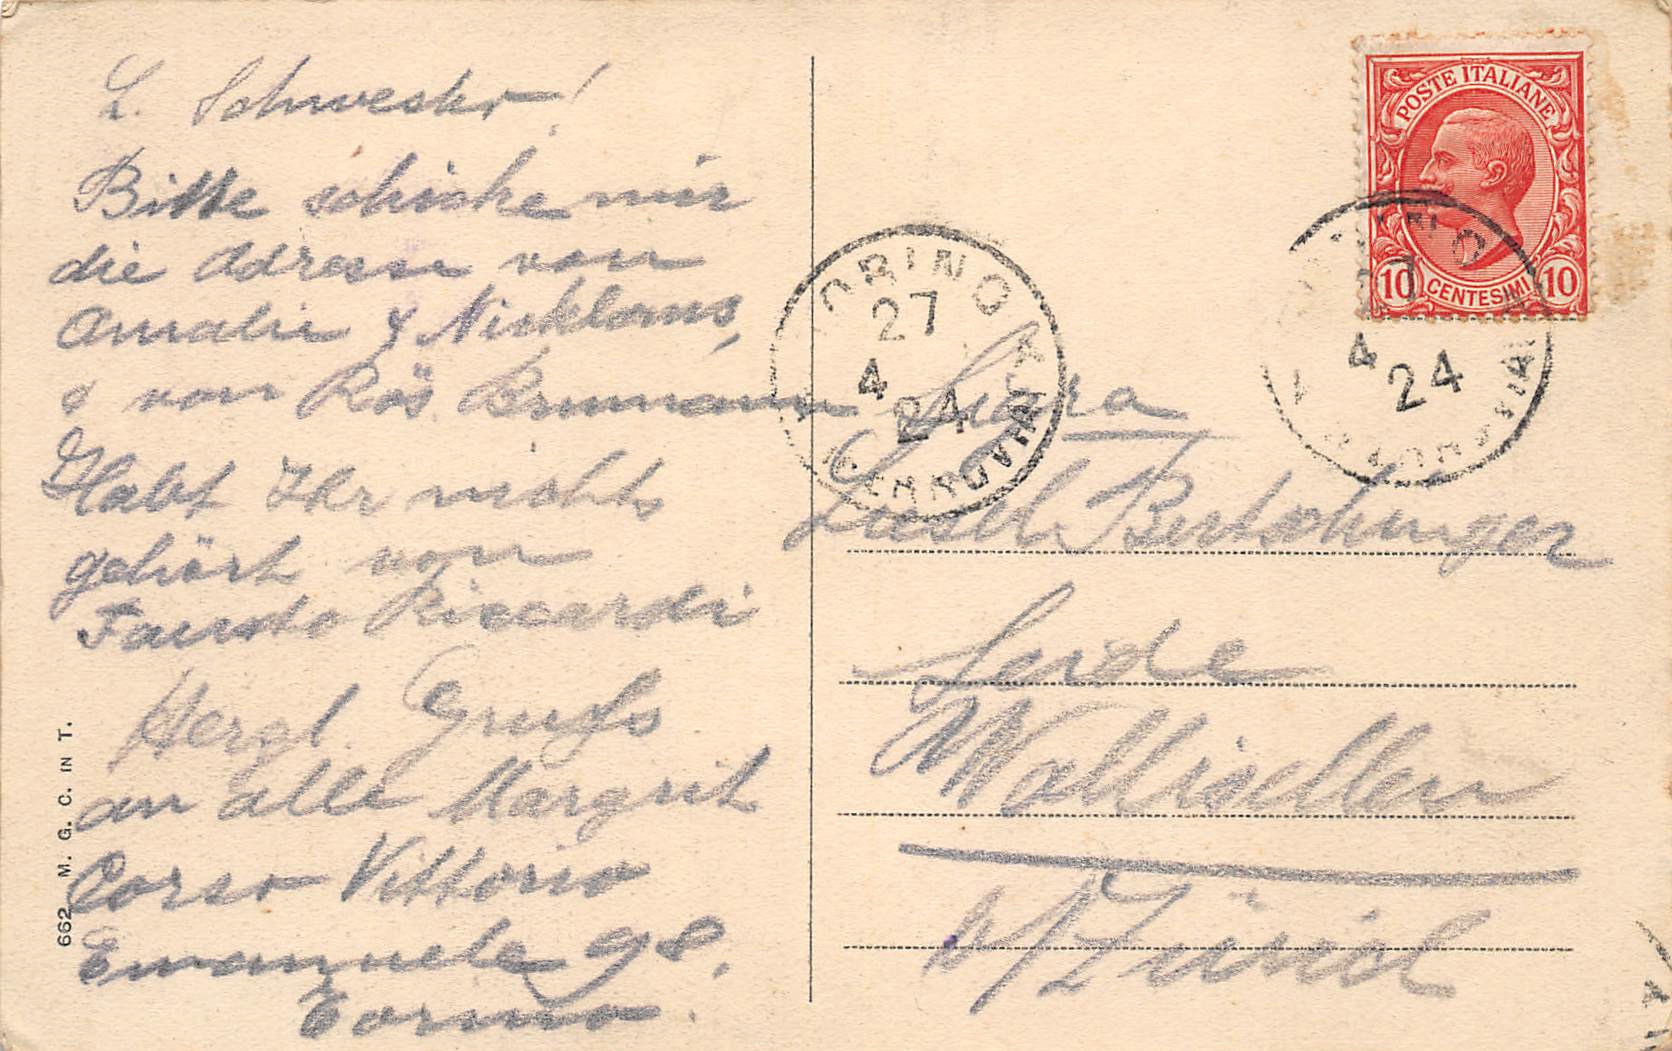 L. Schwester!
Bitte schicke mir
die Adresse von
Amalie & Nicklaus,
& von Rös Brumann
Habt Ihr nichts
gehört von
Fausto Riccardi
Herzl. Gruss
an alle Margrit
Corso Vittorio
Emanuele 98.
Torino.
662 M. G. C. IN T.
POSTE ITALIANE
10 CENTESIMI 10
TORINO
27
4
24
FERROVIA
4
24
Liesel Bertschinger
Seide
Wallisellen
b/Zürich